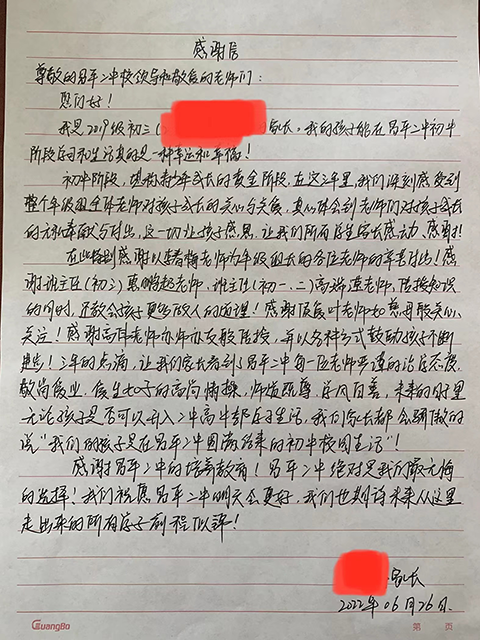 感谢信
尊敬的昌平二中校领导和敬爱的老师们：
您们好！
我是2019级初三( )家长，我的孩子能在昌平二中初中
阶段学习和生活真的是一种幸运和幸福！
初中阶段，是青少年成长的黄金阶段，在这三年里，我们深刻感受到
整个年级组全体老师对孩子成长的关心与关爱，真心体会到老师们对孩子成长
的无私奉献与付出，这一切让孩子感恩，让我们所有学生家长感动、感谢！
在此特别感谢以 老师为年级组长的各位老师的辛苦付出！感
谢班主任(初三) 老师，班主任(初一、二)高 老师，传授知识
的同时，还教会孩子更多做人的道理！感谢 叶老师如慈母般关心、
关注！感谢高 老师 传授，并以各种形式鼓励孩子不断
进步！三年的点滴，让我们家长看到了昌平二中每一位老师严谨的治学态度，
敬岗爱业、爱生如子的高尚情操，师德 ，学风 ，未来的日子里
无论孩子是否可以升入二中高中部学习生活，我们家长都会骄傲的
说“我们的孩子是在昌平二中 的初中校园生活”！
感谢昌平二中的培养教育！昌平二中绝对是我们最无悔
的选择！我们祝愿昌平二中明天会更好，我们也期待未来从这里
走出来的所有学子前程似锦！
家长
2022年06月26日
GuangBo
第 页